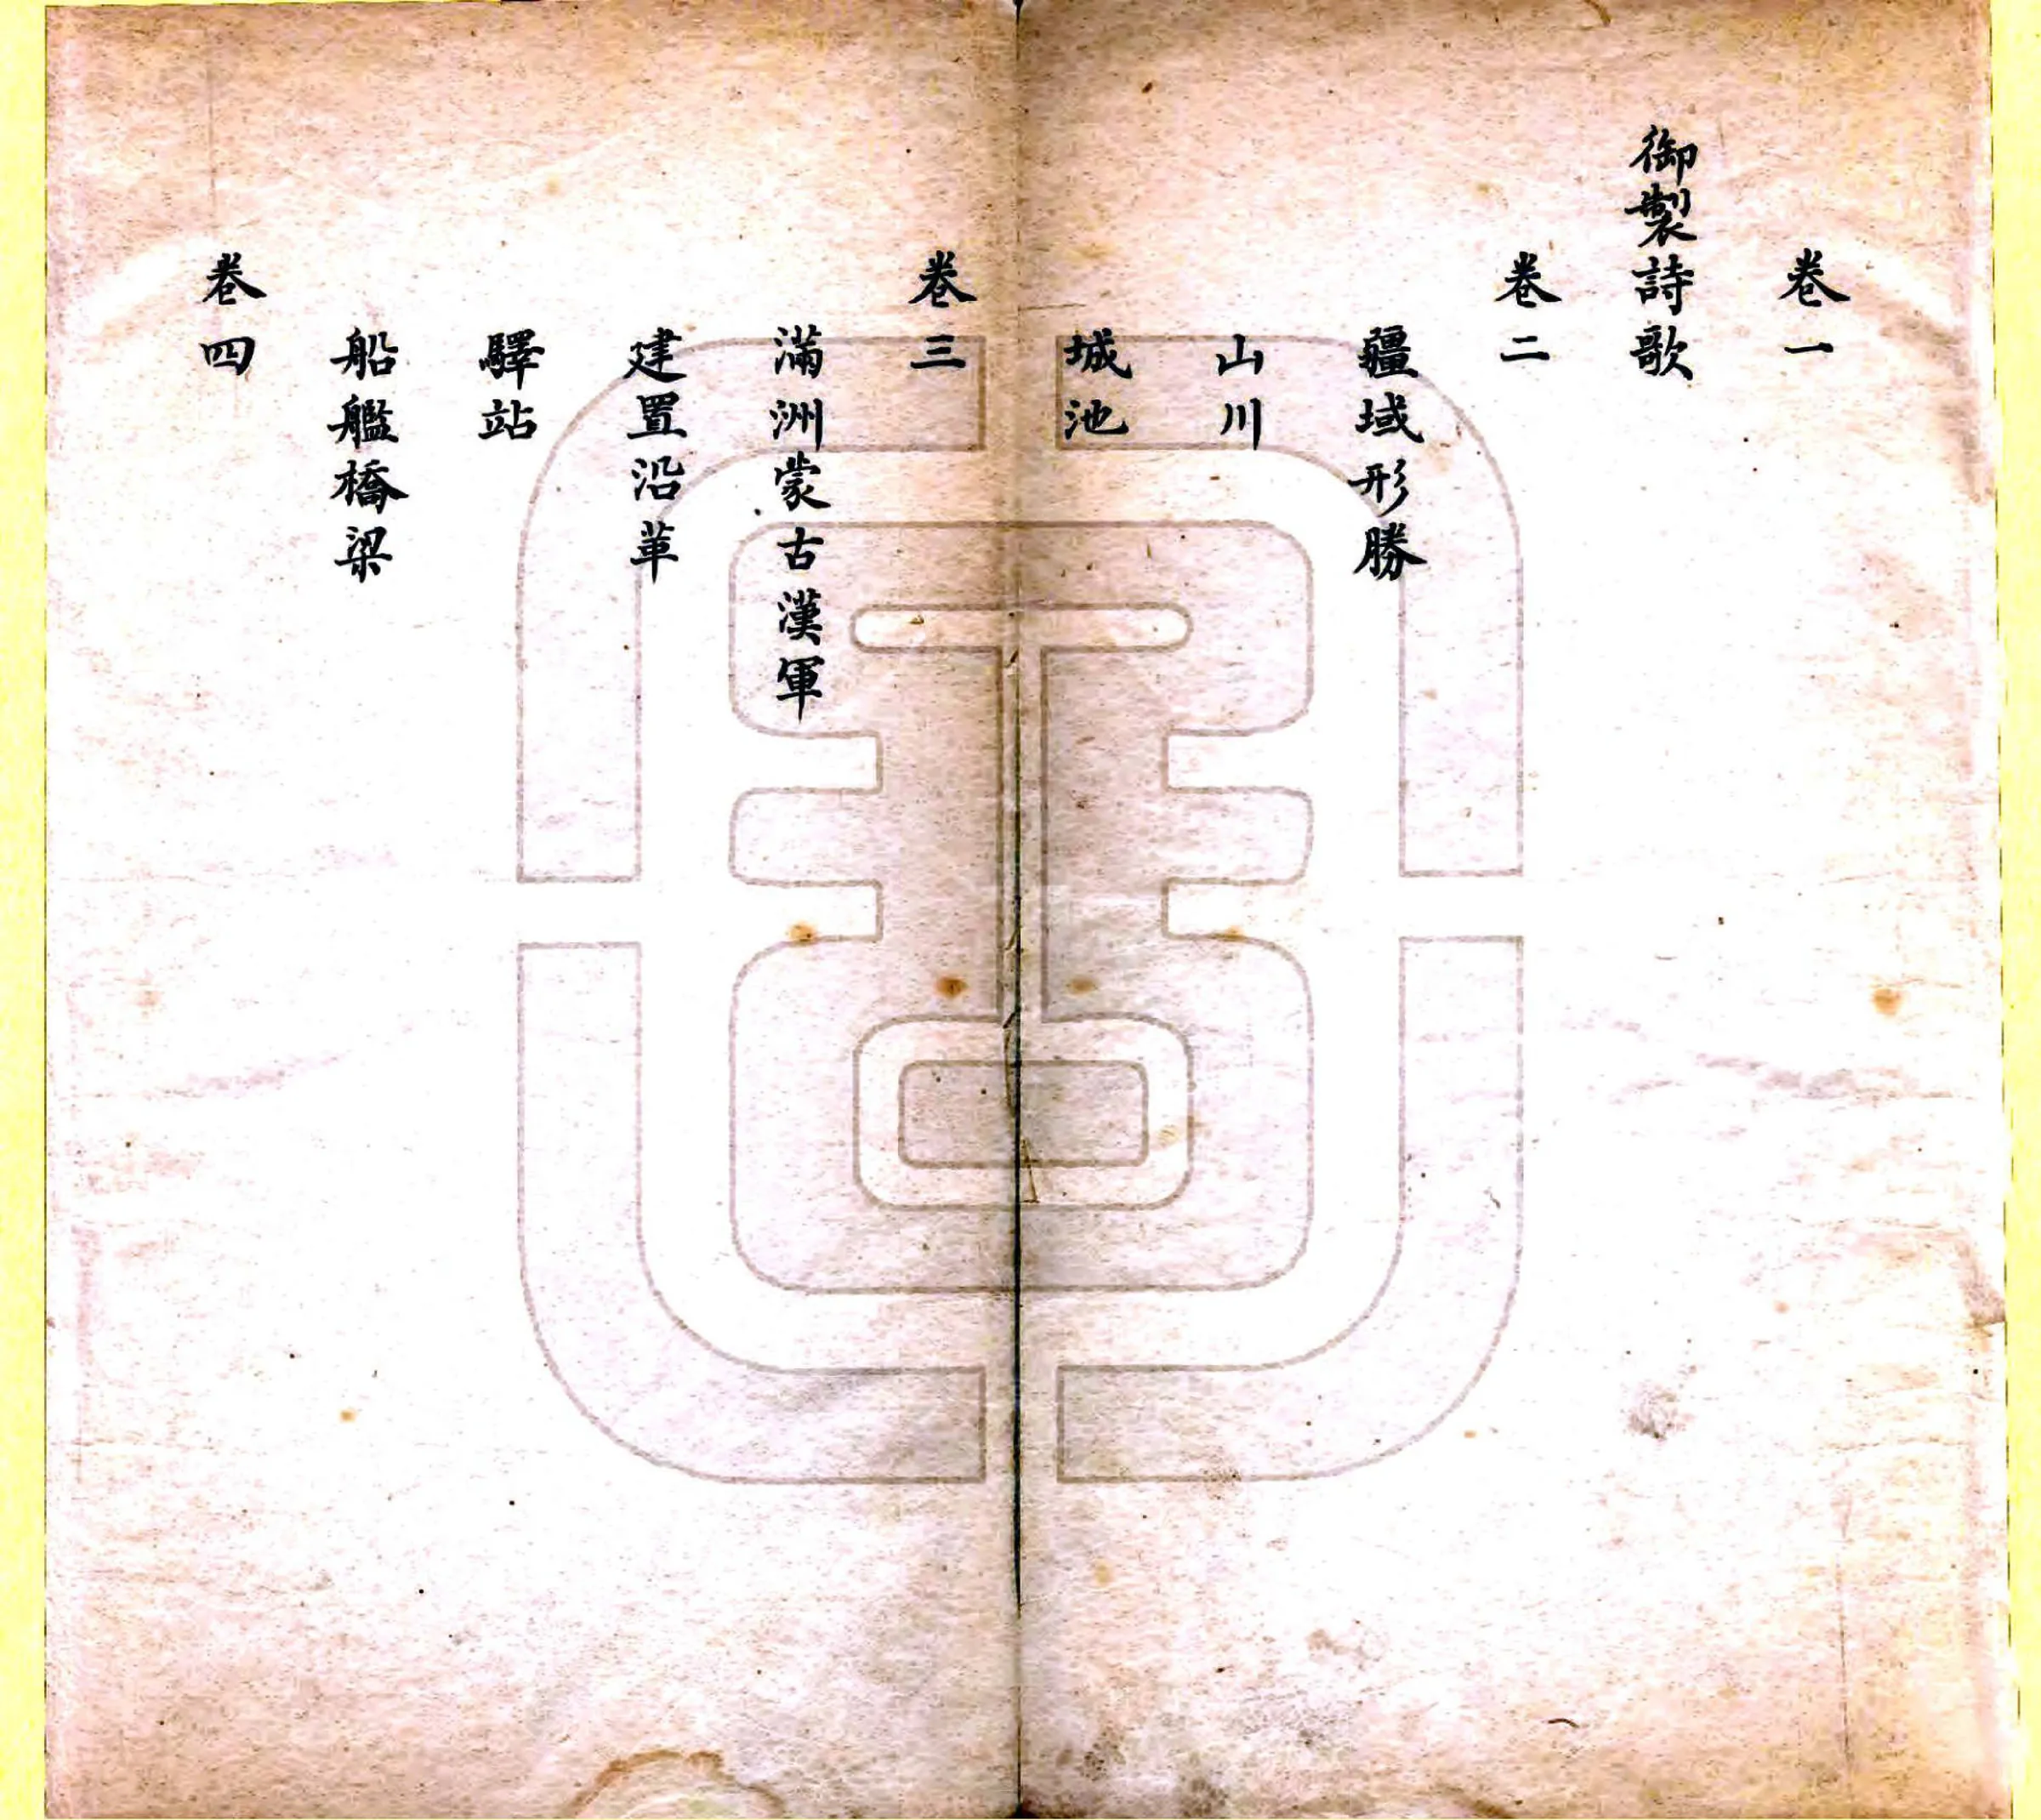 卷一
御製詩歌
卷二
疆域形勝
山川
城池
卷三
滿洲蒙古漢軍
建置沿革
驛站
船艦橋梁
卷四